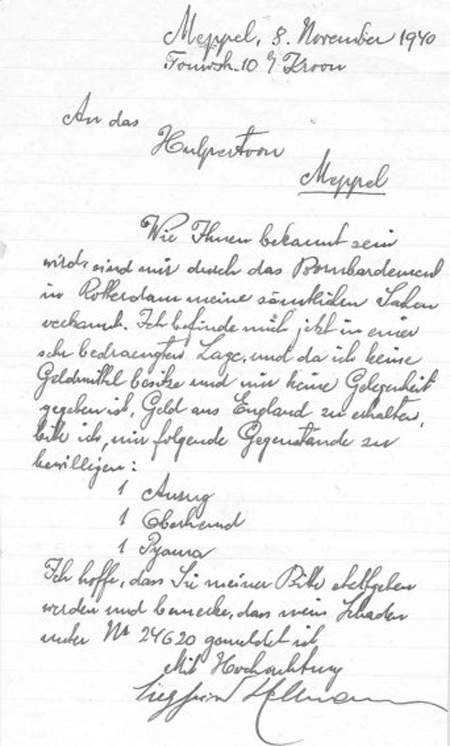 Meppel, 8. November 1940
10 b/ Kroon
An das
Hulpcentrum
Meppel
Wie Ihnen bekannt sein
wird, sind mir durch das Bombardement
in Rotterdam meine sämtlichen Sachen
verbrannt. Ich befinde mich jetzt in einer
sehr bedraengten Lage, und da ich keine
Geldmittel besitze und mir keine Gelegenheit
gegeben ist, Geld aus England zu erhalten,
bitte ich, mir folgende Gegenstande zu
bewilligen:
1 Anzug
1 Oberhemd
1 Pyama
Ich hoffe, dass Sie meiner Bitte stattgeben
werden und bemerke, dass mein Schaden
unter Nr 24620 gemeldet ist
Mit Hochachtung
Siegfried